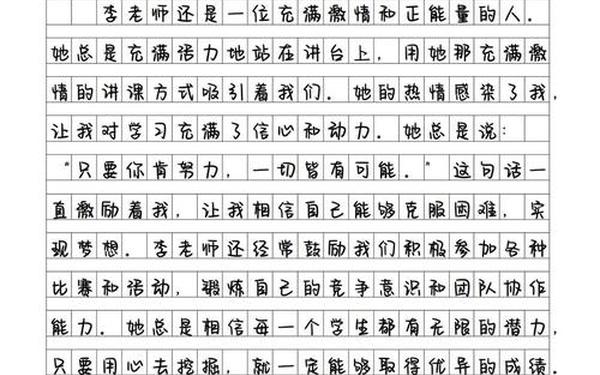 李老师还是一位充满激情和正能量的人.
她总是充满活力地站在讲台上, 用她那充满激
情的讲课方式吸引着我们. 她的热情感染了我,
让我对学习充满了信心和动力. 她总是说:
“只要你肯努力, 一切皆有可能.” 这句话一
直激励着我, 让我相信自己能够克服困难, 实
现梦想. 李老师还经常鼓励我们积极参加各种
比赛和活动, 锻炼自己的竞争意识和团队协作
能力. 她总是相信每一个学生都有无限的潜力,
只要用心去挖掘, 就一定能够取得优异的成绩.